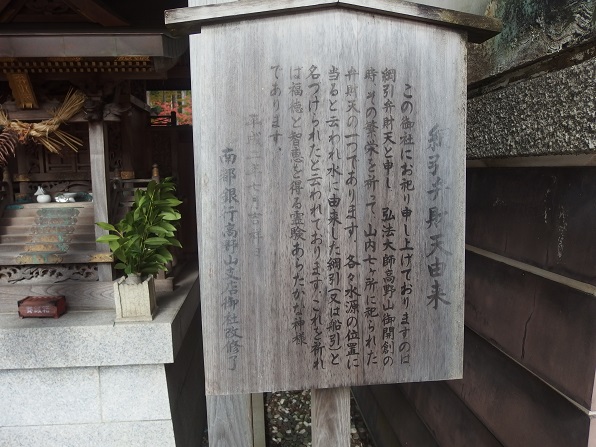 綱引弁財天由来
この御社にお祀り申し上げておりますのは
綱引弁財天と申し、弘法大師高野山御開創の
時その繁栄を祈って、山内七ヶ所に祀られた
弁財天の一つであります。各々水源の位置に
当ると云われ水に由来した綱引(又は船引)と
名づけられたと云われております。これを祈れ
ば福徳と智恵を得る霊験あらたかな神様
であります。
平成二年七月吉祥日
南都銀行高野山支店御社改修了